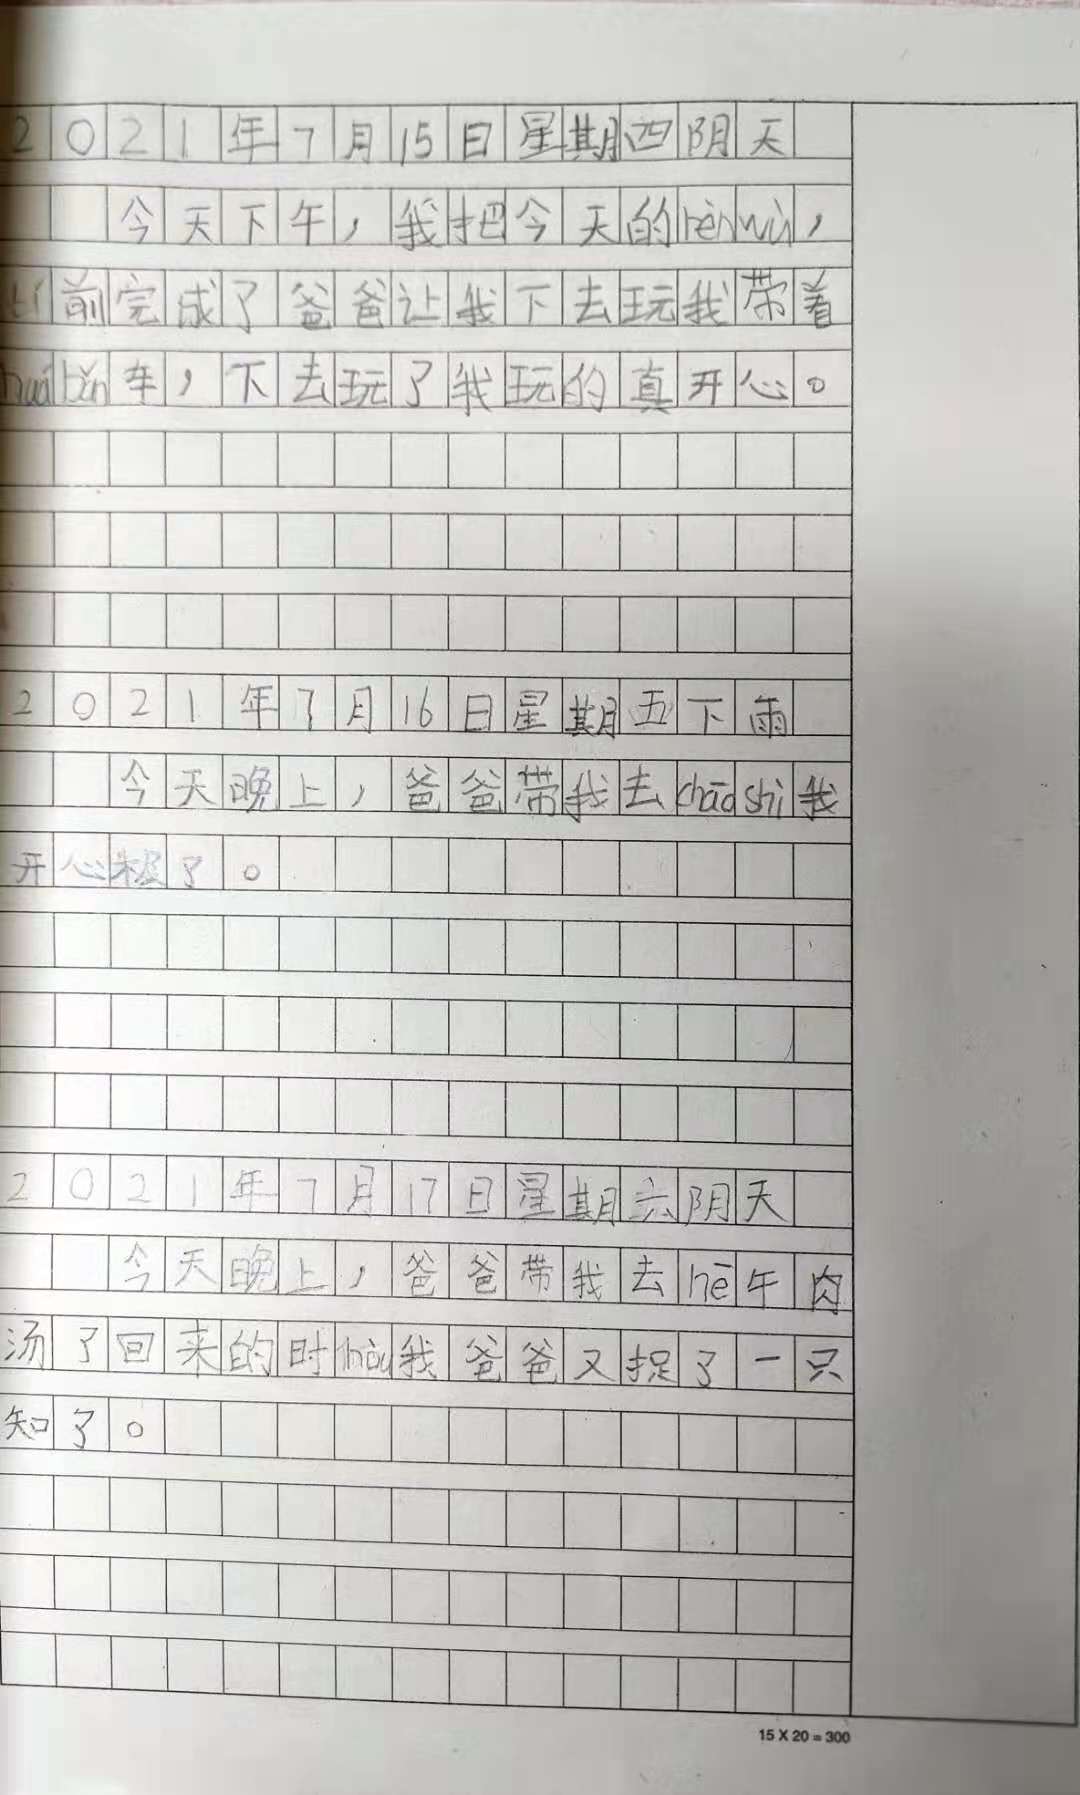 2021年7月15日星期四阴天
今天下午，我把今天的rènwù，
tí前完成了爸爸让我下去玩我带着
huábǎn车，下去玩了我玩的真开心。
2021年7月16日星期五下雨
今天晚上，爸爸带我去chāoshì我
开心极了。
2021年7月17日星期六阴天
今天晚上，爸爸带我去hē午肉
汤了回来的时hòu我爸爸又捉了一只
知了。
15 X 20 = 300